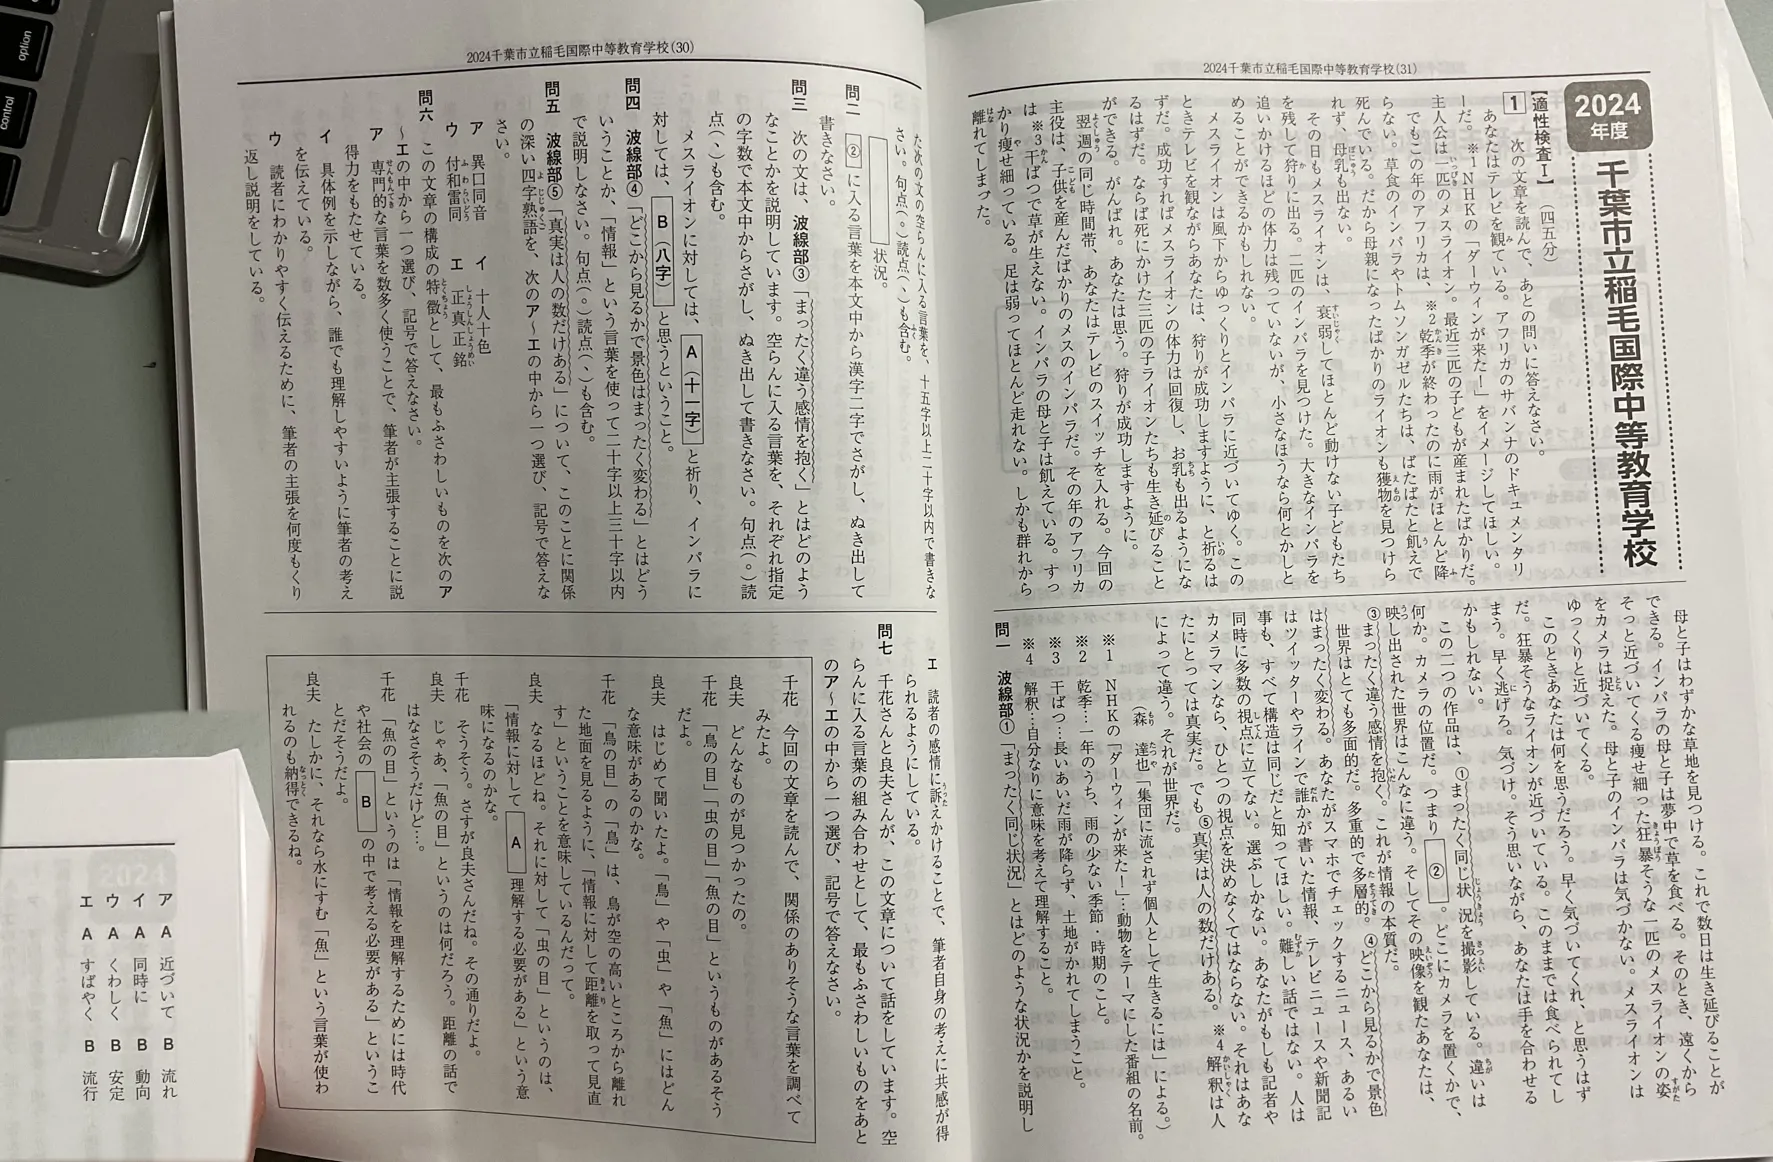 2024千葉市立稲毛国際中等教育学校(31)
2024年度
千葉市立稲毛国際中等教育学校
【適性検査Ⅰ】(四五分)
1 次の文章を読んで、あとの問いに答えなさい。
あなたはテレビを観ている。アフリカのサバンナのドキュメンタリ
ーだ。※1NHKの「ダーウィンが来た!」をイメージしてほしい。
主人公は一匹のメスライオン。最近三匹の子どもが産まれたばかりだ。
でもこの年のアフリカは、※2乾季が終わったのに雨がほとんど降
らない。草食のインパラやトムソンガゼルたちは、ばたばたと飢えで
死んでいる。だから母親になったばかりのライオンも獲物を見つけら
れず、母乳も出ない。
その日もメスライオンは、衰弱してほとんど動けない子どもたち
を残して狩りに出る。二匹のインパラを見つけた。大きなインパラを
追いかけるほどの体力は残っていないが、小さなほうなら何とかしと
めることができるかもしれない。
メスライオンは風下からゆっくりとインパラに近づいてゆく。この
ときテレビを観ながらあなたは、狩りが成功しますように、と祈るは
ずだ。成功すればメスライオンの体力は回復し、お乳も出るようにな
るはずだ。ならば死にかけた三匹の子ライオンたちも生き延びること
ができる。がんばれ。あなたは思う。狩りが成功しますように。
翌週の同じ時間帯、あなたはテレビのスイッチを入れる。今回の
主役は、子供を産んだばかりのメスのインパラだ。その年のアフリカ
は※3干ばつで草が生えない。インパラの母と子は飢えている。すっ
かり痩せ細っている。足は弱ってほとんど走れない。しかも群れから
離れてしまった。
母と子はわずかな草地を見つける。これで数日は生き延びることが
できる。インパラの母と子は夢中で草を食べる。そのとき、遠くから
そっと近づいてくる痩せ細った狂暴そうな一匹のメスライオンの姿
をカメラは捉えた。母と子のインパラは気づかない。メスライオンは
ゆっくりと近づいてくる。
このときあなたは何を思うだろう。早く気づいてくれ、と思うはず
だ。狂暴そうなライオンが近づいている。このままでは食べられてし
まう。早く逃げろ。気づけ。そう思いながら、あなたは手を合わせる
かもしれない。
この二つの作品は、①まったく同じ状況を撮影している。違いは
何か。カメラの位置だ。つまり②。どこにカメラを置くかで、
映し出された世界はこんなに違う。そしてその映像を観たあなたは、
③まったく違う感情を抱く。これが情報の本質だ。
世界はとても多面的だ。多重的で多層的。④どこから見るかで景色
はまったく変わる。あなたがスマホでチェックするニュース、あるい
はツイッターやラインで誰かが書いた情報、テレビニュースや新聞記
事も、すべて構造は同じだと知ってほしい。難しい話ではない。人は
同時に多数の視点に立てない。選ぶしかない。あなたがもしも記者や
カメラマンなら、ひとつの視点を決めなくてはならない。それはあな
たにとっては真実だ。でも⑤真実は人の数だけある。※4解釈は人
によって違う。それが世界だ。
(森 達也「集団に流されず個人として生きるには」による。)
※1 NHKの「ダーウィンが来た!」…動物をテーマにした番組の名前。
※2 乾季…一年のうち、雨の少ない季節・時期のこと。
※3 干ばつ…長いあいだ雨が降らず、土地がかれてしまうこと。
※4 解釈…自分なりに意味を考えて理解すること。
問一 波線部①「まったく同じ状況」とはどのような状況かを説明し
2024千葉市立稲毛国際中等教育学校(30)
た次の文の空らんに入る言葉を、十五字以上二十字以内で書きな
さい。句点(。)読点(、)も含む。
状況。
問二 ②に入る言葉を本文中から漢字二字でさがし、ぬき出して
書きなさい。
問三 次の文は、波線部③「まったく違う感情を抱く」とはどのよう
なことかを説明しています。空らんに入る言葉を、それぞれ指定
の字数で本文中からさがし、ぬき出して書きなさい。句点(。)読
点(、)も含む。
メスライオンに対しては、A(十一字)と祈り、インパラに
対しては、B(八字)と思うということ。
問四 波線部④「どこから見るかで景色はまったく変わる」とはどう
いうことか、「情報」という言葉を使って二十字以上三十字以内
で説明しなさい。句点(。)読点(、)も含む。
問五 波線部⑤「真実は人の数だけある」について、このことに関係
の深い四字熟語を、次のア〜エの中から一つ選び、記号で答えな
さい。
ア 異口同音 イ 十人十色
ウ 付和雷同 エ 正真正銘
問六 この文章の構成の特徴として、最もふさわしいものを次のア
〜エの中から一つ選び、記号で答えなさい。
ア 専門的な言葉を数多く使うことで、筆者が主張することに説
得力をもたせている。
イ 具体例を示しながら、誰でも理解しやすいように筆者の考え
を伝えている。
ウ 読者にわかりやすく伝えるために、筆者の主張を何度もくり
返し説明をしている。
エ 読者の感情に訴えかけることで、筆者自身の考えに共感が得
られるようにしている。
問七 千花さんと良夫さんが、この文章について話をしています。空
らんに入る言葉の組み合わせとして、最もふさわしいものをあと
のア〜エの中から一つ選び、記号で答えなさい。
千花 今回の文章を読んで、関係のありそうな言葉を調べて
みたよ。
良夫 どんなものが見つかったの。
千花 「鳥の目」「虫の目」「魚の目」というものがあるそう
だよ。
良夫 はじめて聞いたよ。「鳥」や「虫」や「魚」にはどん
な意味があるのかな。
千花 「鳥の目」の「鳥」は、鳥が空の高いところから離れ
た地面を見るように、「情報に対して距離を取って見直
す」ということを意味しているんだって。
良夫 なるほどね。それに対して「虫の目」というのは、
「情報に対してA理解する必要がある」という意
味になるのかな。
千花 そうそう。さすが良夫さんだね。その通りだよ。
良夫 じゃあ、「魚の目」というのは何だろう。距離の話で
はなさそうだけど…。
千花 「魚の目」というのは「情報を理解するためには時代
や社会のBの中で考える必要がある」というこ
とだそうだよ。
良夫 たしかに、それなら水にすむ「魚」という言葉が使わ
れるのも納得できるね。
ア A 近づいて B 流れ
イ A 同時に B 動向
ウ A くわしく B 安定
エ A すばやく B 流行
option
control